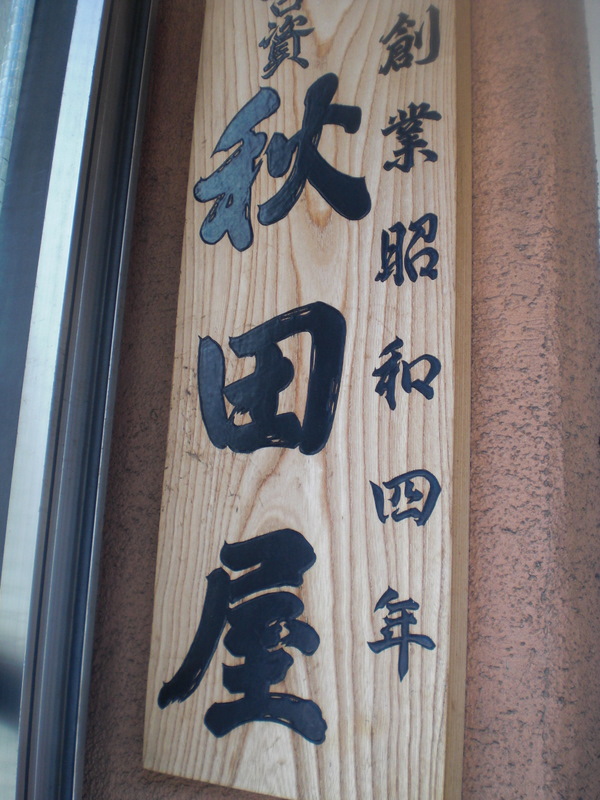 創業昭和四年
資
秋田屋